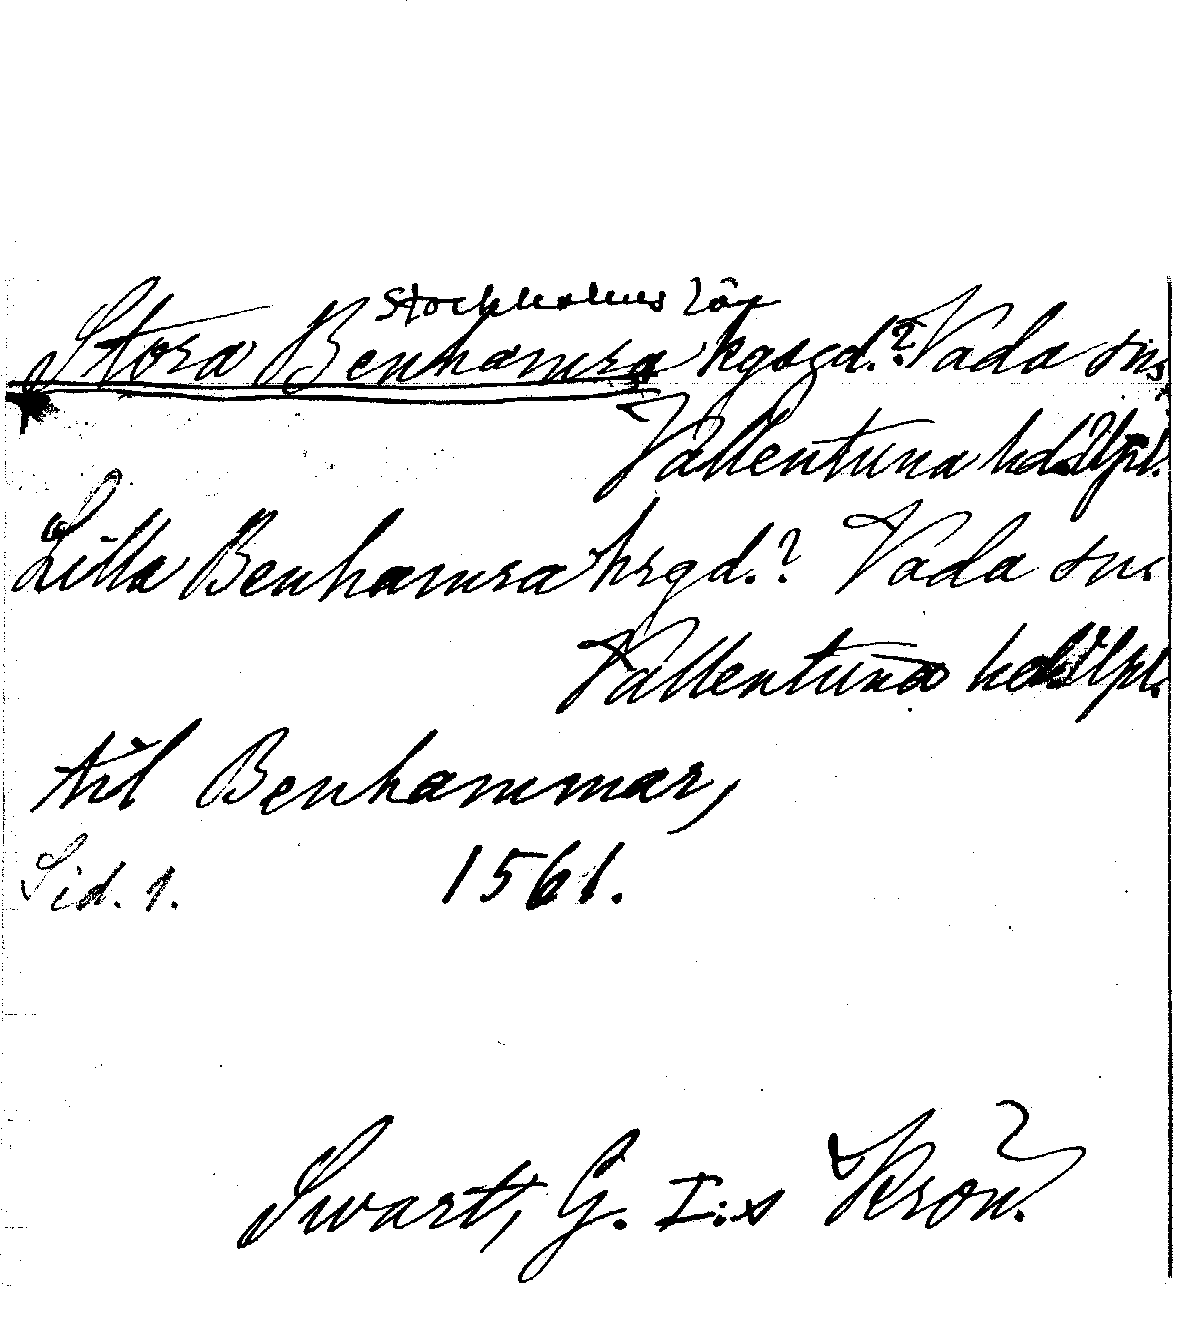 Stockholms län
Stora Benhamra kgsgd.? Vada sns
Vallentuna hd.? Upl.
Lilla Benhamra hrgd.? Vada sns
Vallentuna hd. Upl.
til Benhammar,
Sid. 1. 1561.
Swart, G. I:s Krön.